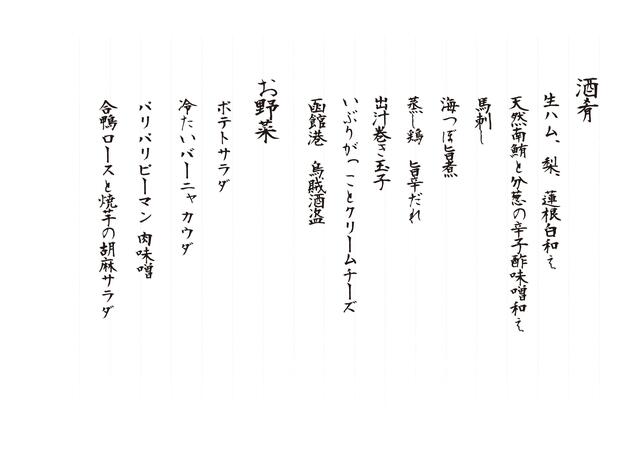 酒肴
生ハム、梨、蓮根白和え
天然南鮪と分葱の辛子酢味噌和え
馬刺し
海つぼ旨煮
蒸し鶏 旨辛だれ
出汁巻き玉子
いぶりがっことクリームチーズ
函館港 烏賊酒盗
お野菜
ポテトサラダ
冷たいバーニャカウダ
バリバリピーマン 肉味噌
合鴨ロースと焼芋の胡麻サラダ